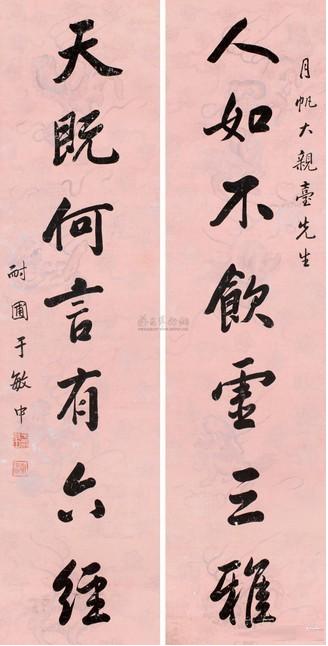 月帆大親臺先生
人如不飲虛三雅
天既何言有六經
耐圃于敏中